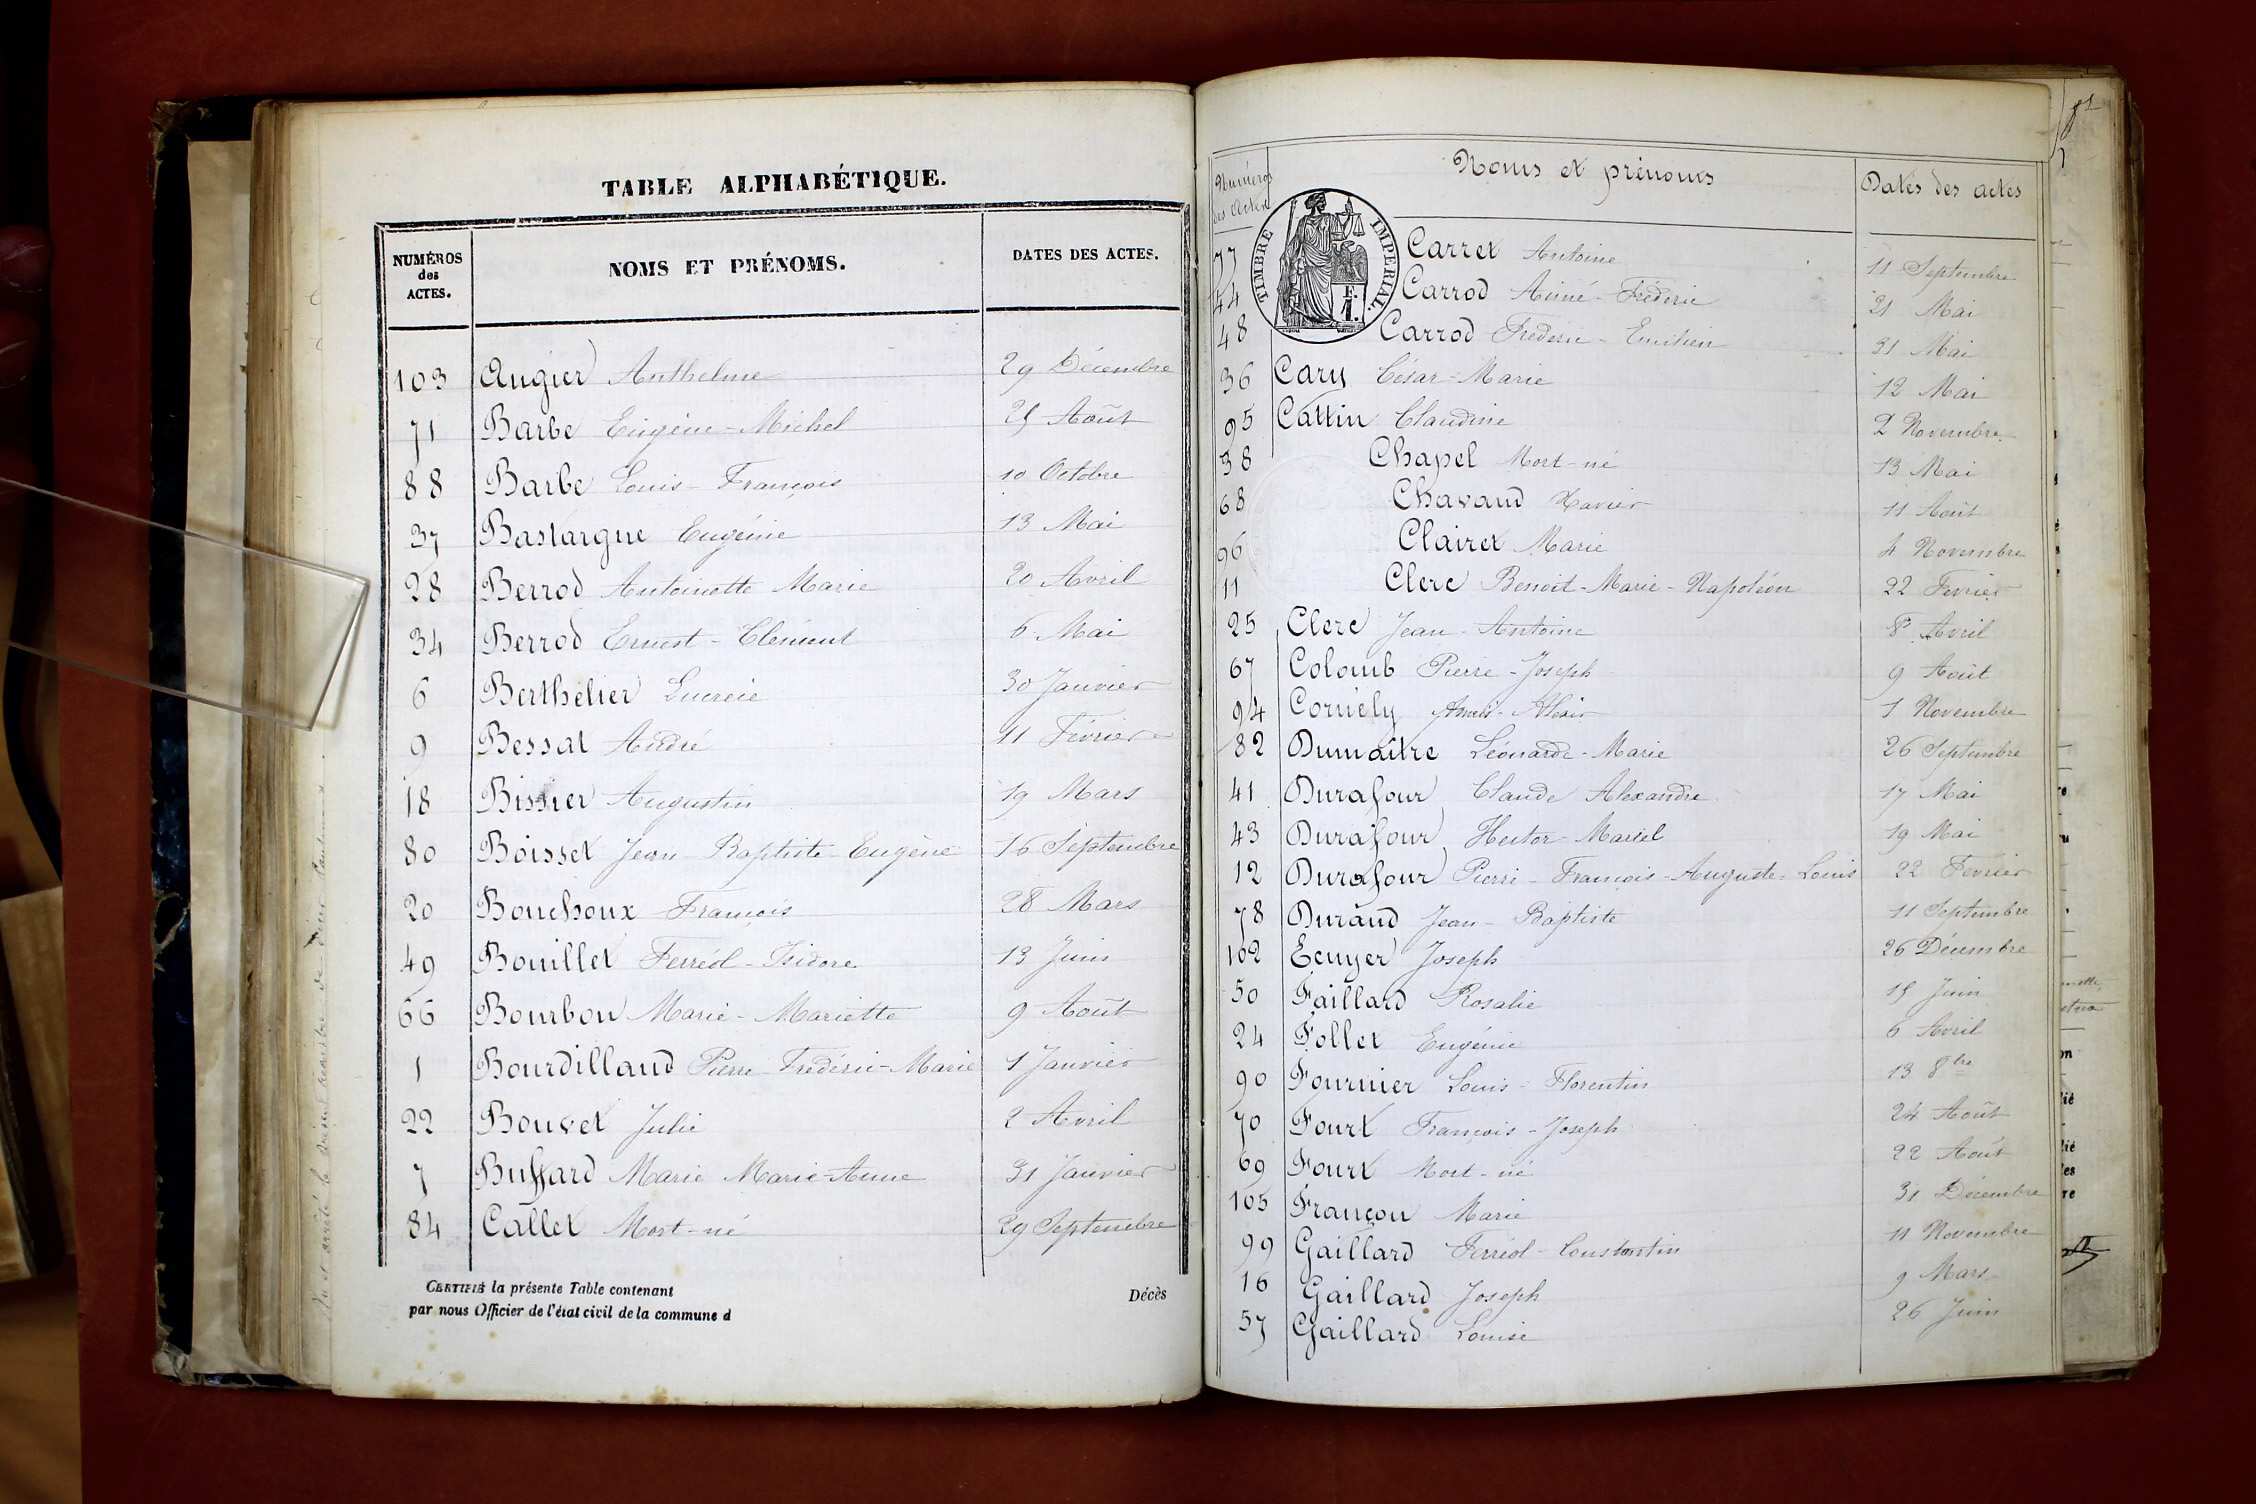 TABLE ALPHABÉTIQUE.
NUMÉROS des ACTES. NOMS ET PRÉNOMS. DATES DES ACTES.
103 Augier Anthelme 29 Décembre
71 Barbe Eugène-Michel 25 Août
88 Barbe Louis-François 10 Octobre
37 Bastargue Eugénie 13 Mai
28 Berrod Antoinette Marie 20 Avril
34 Berrod Ernest-Clément 6 Mai
6 Berthelier Lucrèce 30 Janvier
9 Bessat André 11 Février
18 Bissier Augustin 19 Mars
80 Boisset Jean-Baptiste-Eugène 16 Septembre
20 Bouchoux François 28 Mars
49 Bouillet Ferréol-Isidore 13 Juin
66 Bourbon Marie-Mariette 9 Août
1 Bourdilland Pierre-Frédéric-Marie 1 Janvier
22 Bouvet Julie 2 Avril
7 Buffard Marie Marie-Anne 31 Janvier
84 Callet Mort-né 29 Septembre
CERTIFIÉ la présente Table contenant Décès
par nous Officier de l'état civil de la commune d
Numéros des Actes Noms et prénoms Dates des actes
TIMBRE IMPERIAL.
77 Carret Antoine 11 Septembre
44 Carrod Aimé-Fréderic 21 Mai
48 Carrod Fréderic-Emilien 31 Mai
36 Cary César-Marie 12 Mai
95 Cattin Claudine 2 Novembre
38 Chapel Mort-né 13 Mai
68 Chavand Xavier 11 Août
96 Clairet Marie 4 Novembre
11 Clerc Benoit-Marie-Napoléon 22 Février
25 Clerc Jean-Antoine 8 Avril
67 Colomb Pierre-Joseph 9 Août
94 Cornély Alexis 1 Novembre
82 Dumaître Léonarde-Marie 26 Septembre
41 Durafour Claude Alexandre 17 Mai
43 Durafour Hector-Marcel 19 Mai
12 Durafour Pierre-François-Auguste-Louis 22 Février
78 Durand Jean-Baptiste 11 Septembre
102 Ecuyer Joseph 26 Décembre
50 Faillard Rosalie 15 Juin
24 Follet Eugénie 6 Avril
90 Fournier Louis-Florentin 13 8bre
70 Fourt François-Joseph 24 Août
69 Fourt Mort-né 22 Août
105 Françon Marie 31 Décembre
99 Gaillard Ferréol-Constantin 11 Novembre
16 Gaillard Joseph 9 Mars
57 Gaillard Louise 26 Juin